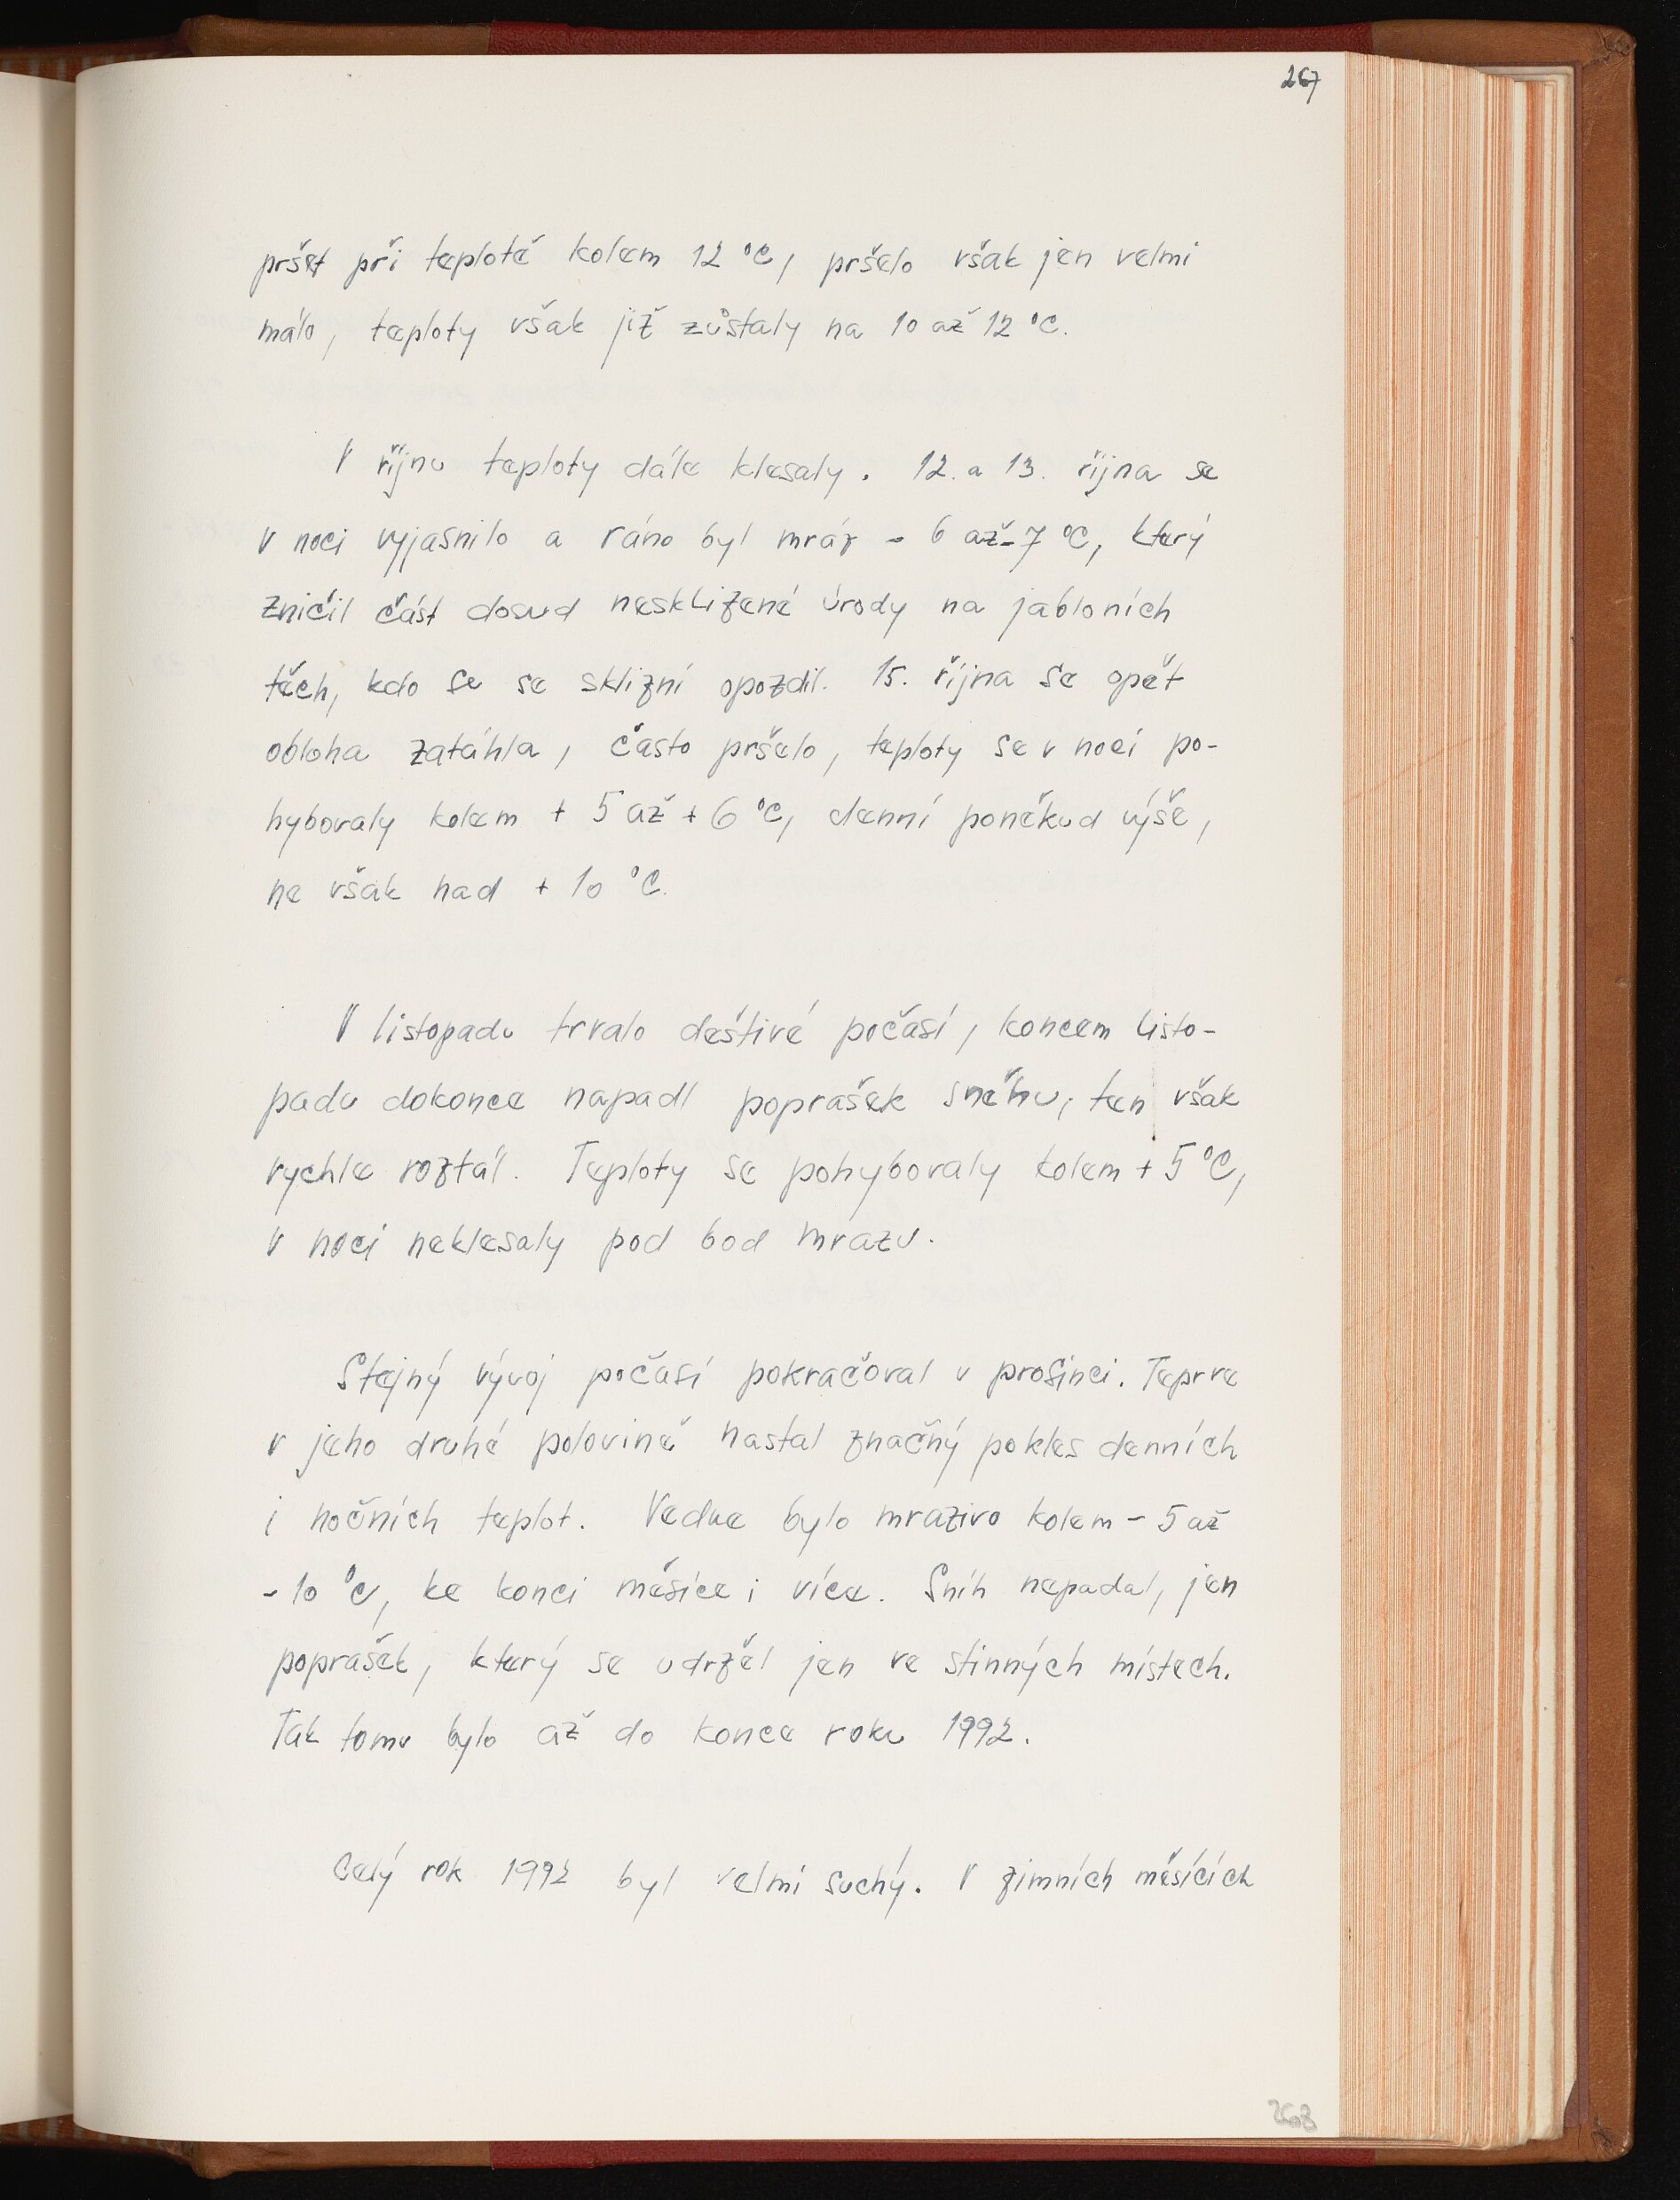 267
pršet při teplotě kolem 12 °C, pršelo však jen velmi
málo, teploty však již zůstaly na 10 až 12 °C.
V říjnu teploty dále klesaly. 12. a 13. října se
v noci vyjasnilo a ráno byl mráz - 6 až - 7 °C, který
zničil část dosud nesklizené úrody na jabloních
těch, kdo se se sklizní opozdil. 15. října se opět
obloha zatáhla, často pršelo, teploty se v noci po-
hybovaly kolem + 5 až + 6 °C, denní poněkud výše,
ne však nad + 10 °C.
V listopadu trvalo deštivé počasí, koncem listo-
padu dokonce napadl poprašek sněhu, ten však
rychle roztál. Teploty se pohybovaly kolem + 5 °C,
v noci neklesaly pod bod mrazu.
Stejný vývoj počasí pokračoval v prosinci. Teprve
v jeho druhé polovině nastal značný pokles denních
i nočních teplot. Vedne bylo mrazivo kolem - 5 až
- 10 °C, ke konci měsíce i více. Sníh nepadal, jen
poprašek, který se udržel jen ve stinných místech.
Tak tomu bylo až do konce roku 1992.
Celý rok 1992 byl velmi suchý. V zimních měsících
268